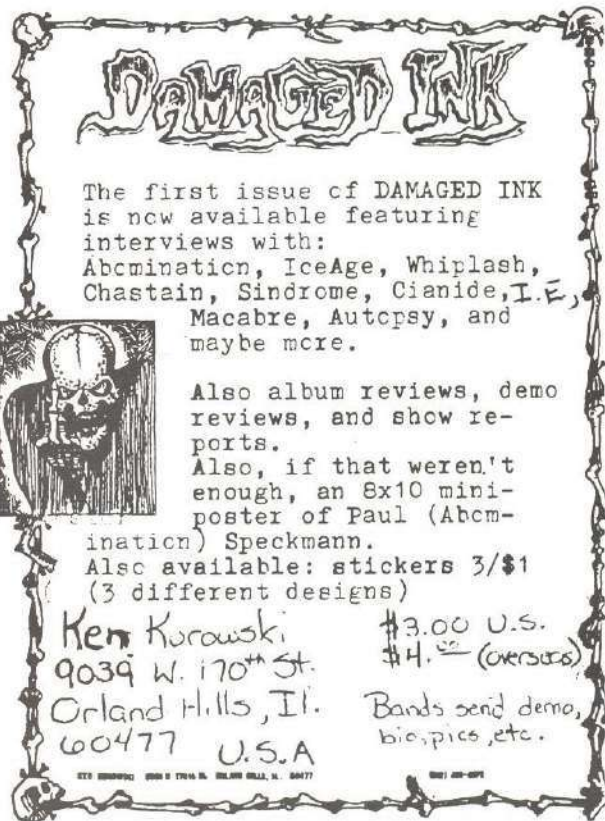 DAMAGED INK
The first issue of DAMAGED INK
is now available featuring
interviews with:
Abomination, IceAge, Whiplash,
Chastain, Sindrome, Cianide, I.E,
Macabre, Autopsy, and
maybe more.
Also album reviews, demo
reviews, and show re-
ports.
Also, if that weren't
enough, an 8x10 mini-
poster of Paul (Abom-
ination) Speckmann.
Also available: stickers 3/$1
(3 different designs)
Ken Kurowski
9039 W. 170th St.
Orland Hills, Il.
60477 U.S.A
$3.00 U.S.
$4.00 (overseas)
Bands send demo,
bio, pics, etc.